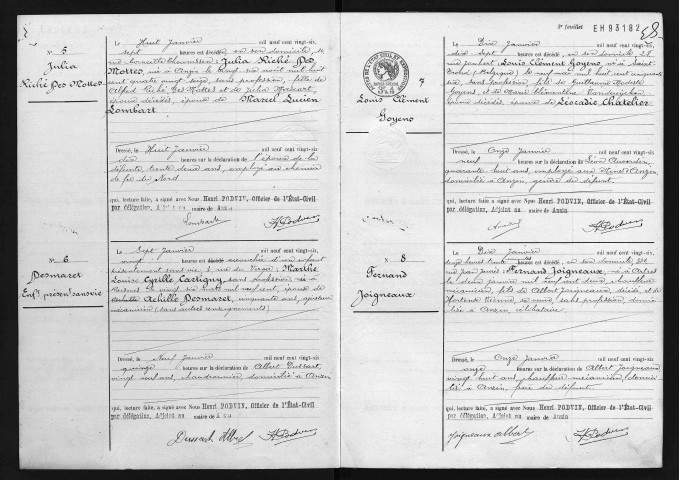 N° 5
Julia
Riché Des Mottes
Le Huit Janvier mil neuf cent vingt-six,
sept heures est décédée, en son domicile,
Julia Riché Des
Mottes, née à Anzin le vingt six août mil huit
cent quatre vingt, sans profession, fille de
Alfred Riché Des Mottes et de Julia
décédés, épouse de Marcel Lucien
Lombart
Dressé, le Huit Janvier mil neuf cent vingt-six
dix heures sur la déclaration de l'époux de la
défunte, trente deux ans, employé au chemin
de fer du Nord
qui, lecture faite, a signé avec Nous Henri PODVIN, Officier de l'État-Civil
par délégation, Adjoint au maire de Anzin
Lombart HPodvin
N° 6
Desmaret
Enft présent sans vie
Le Sept Janvier mil neuf cent vingt-six,
vingt heures est accouchée d'un enfant
présentement sans vie, rue du Vivier, Marthe
Louise Cyrille Cartigny, sans profession, née à
le vingt six mars mil neuf cent, épouse de
Achille Desmaret, cinquante ans, ajusteur
mécanicien (sans autres renseignements)
Dressé, le Neuf Janvier mil neuf cent vingt-six
quinze heures sur la déclaration de Albert Dussart,
vingt neuf ans, chaudronnier, domicilié à Anzin
qui, lecture faite, a signé avec Nous Henri PODVIN, Officier de l'État-Civil
par délégation, Adjoint au maire de Anzin
Dussart Albert HPodvin
feuillet EM93182
7
Louis Clément
Goyens
Le Dix Janvier mil neuf cent vingt-six,
dix sept heures est décédé, en son domicile, 28
rue Jaubert Louis Clément Goyens, né à Saint
(Belgique) le neuf mai mil huit cent cinquante
six, sans profession, fils de Guillaume
Goyens, et de Marie Clémentine
décédés, époux de Léocadie Chatelier
Dressé, le Onze Janvier mil neuf cent vingt-six
neuf heures sur la déclaration de Léon
quarante huit ans, employé aux Mines d'Anzin,
domicilié à Anzin, gendre du défunt
qui, lecture faite, a signé avec Nous Henri PODVIN, Officier de l'État-Civil
par délégation, Adjoint au maire de Anzin
HPodvin
N° 8
Fernand
Joigneaux
Le Dix Janvier mil neuf cent vingt-six,
onze heures trente est décédé, en son domicile,
rue Jean Jaurès, Fernand Joigneaux, né à
le deux janvier mil neuf cent deux, chauffeur
mécanicien, fils de Albert Joigneaux, décédé, et de
Hortense sa veuve, sans profession, domici-
liée à Anzin, célibataire
Dressé, le Onze Janvier mil neuf cent vingt-six
onze heures sur la déclaration de Albert Joigneaux
vingt huit ans, chauffeur mécanicien, domici-
lié à Anzin, frère du défunt
qui, lecture faite, a signé avec Nous Henri PODVIN, Officier de l'État-Civil
par délégation, Adjoint au maire de Anzin
Joigneaux Albert HPodvin